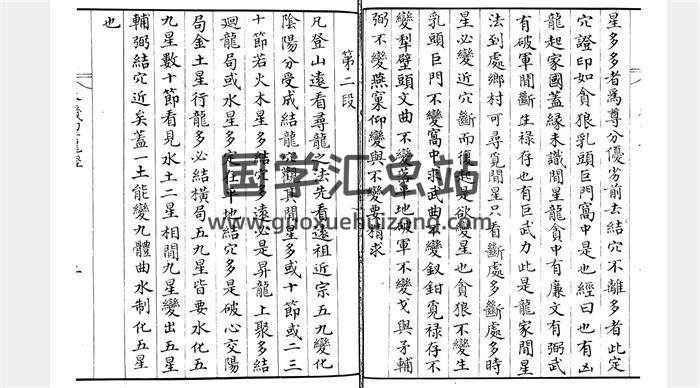 星多多者為尊分優劣前去結穴不離多者此定
穴證印如貪狼乳頭巨門窩中是也經曰也有凶
龍起家國蓋緣未識間星龍貪中有廉文有弼武
有破軍間斷生祿存也有巨武力此是龍家間星
法到處鄉村可尋覓間星只看斷處多斷處多時
星必變近穴斷而復起是欲變星也貪狼不變生
乳頭巨門不變窩中求武曲不變釵鉗覓祿存不
變犁壁頭文曲不變 地 軍不變戈與矛輔
弼不變燕窠仰變與不變要精求
第二段
凡登山遠看尋龍之法先看遠祖近宗五九變化
陰陽分受成結龍 觀其間星多或十節或二三
十節若火木星多結穴多遠必是昇龍上聚多結
廻龍局或水星多定在平地結穴多是破心交陽
局金土星行龍多必結橫局五九星皆要水化五
九星數十節看見水土二星相間九星變出五星
輔弼結穴近矣蓋一土能變九體曲水制化五星
也
国学汇总站
www.guoxuehuizong.com